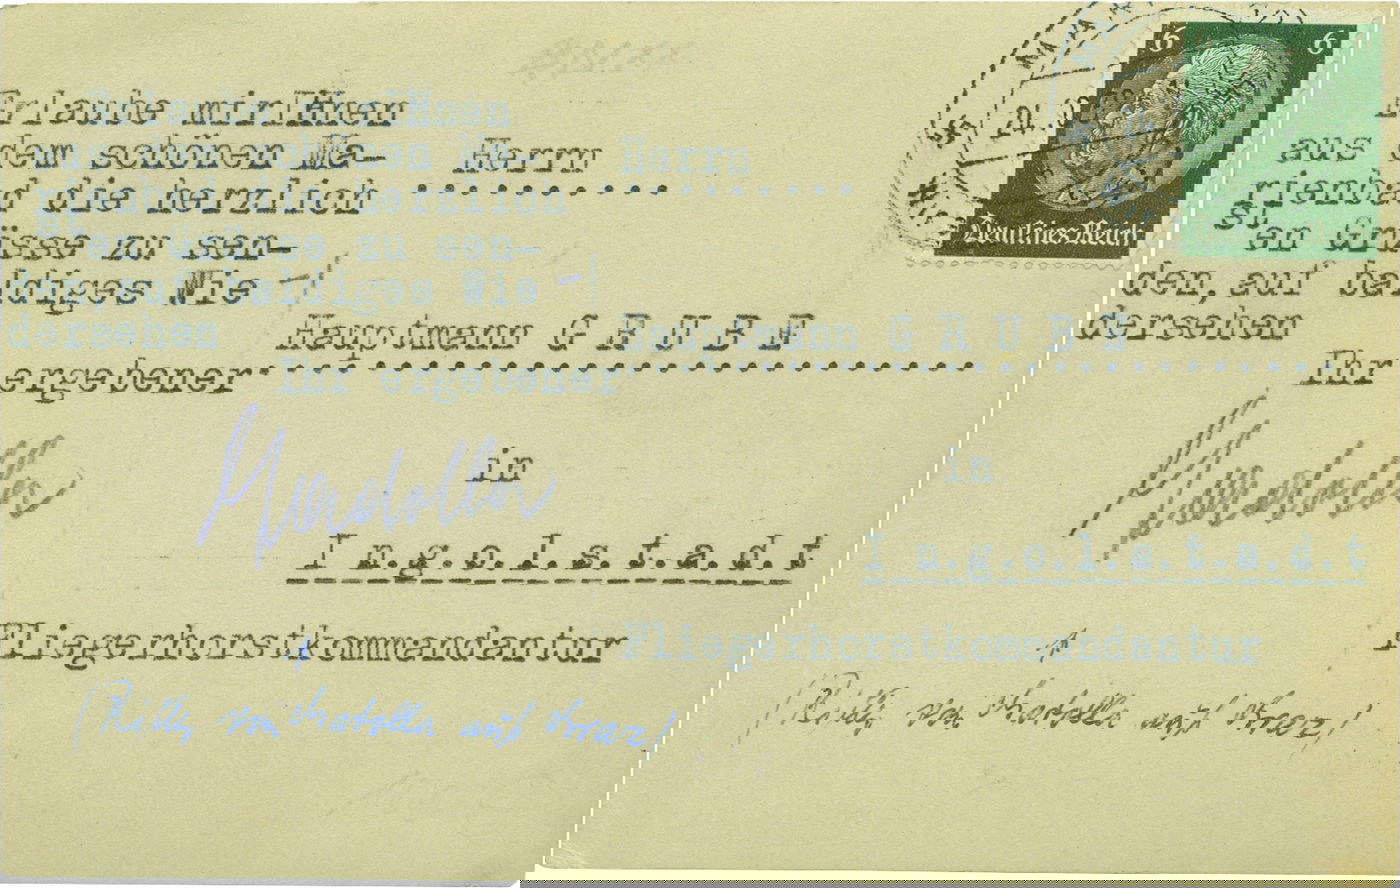 Erlaube mir Ihnen
aus dem schönen Ma-
rienbad die herzlich
sten Grüsse zu sen-
den, auf baldiges Wie
dersehen
Ihr ergebener
Herrn
Hauptmann G R U B E
in
I n.g.o.l.s.t.a.d.t
Fliegerhorstkommandantur
6 6
Deutsches Reich